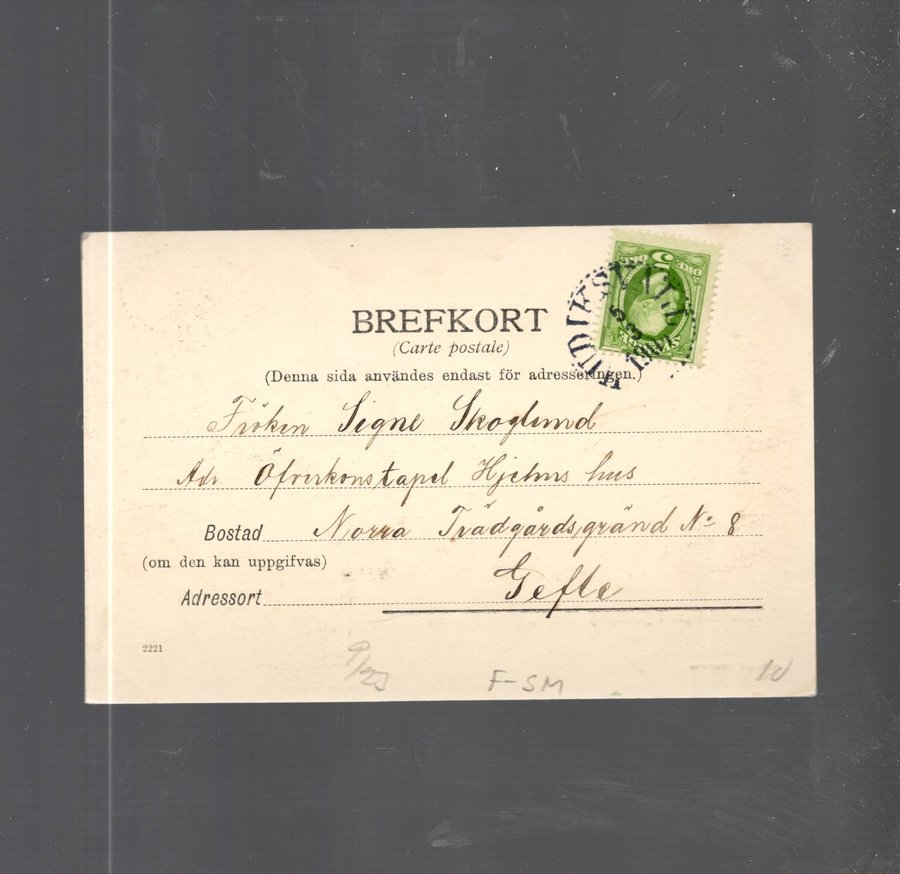 BREFKORT
(Carte postale)
(Denna sida användes endast för adresseringen.)
Fröken Signe Skoglund
Adr Öfverkonstapel Hjelms hus
Bostad Norra Trädgårdsgränd No 8
(om den kan uppgifvas)
Adressort Gefle
2221
F-SM
10
5
HUDIKSVALL